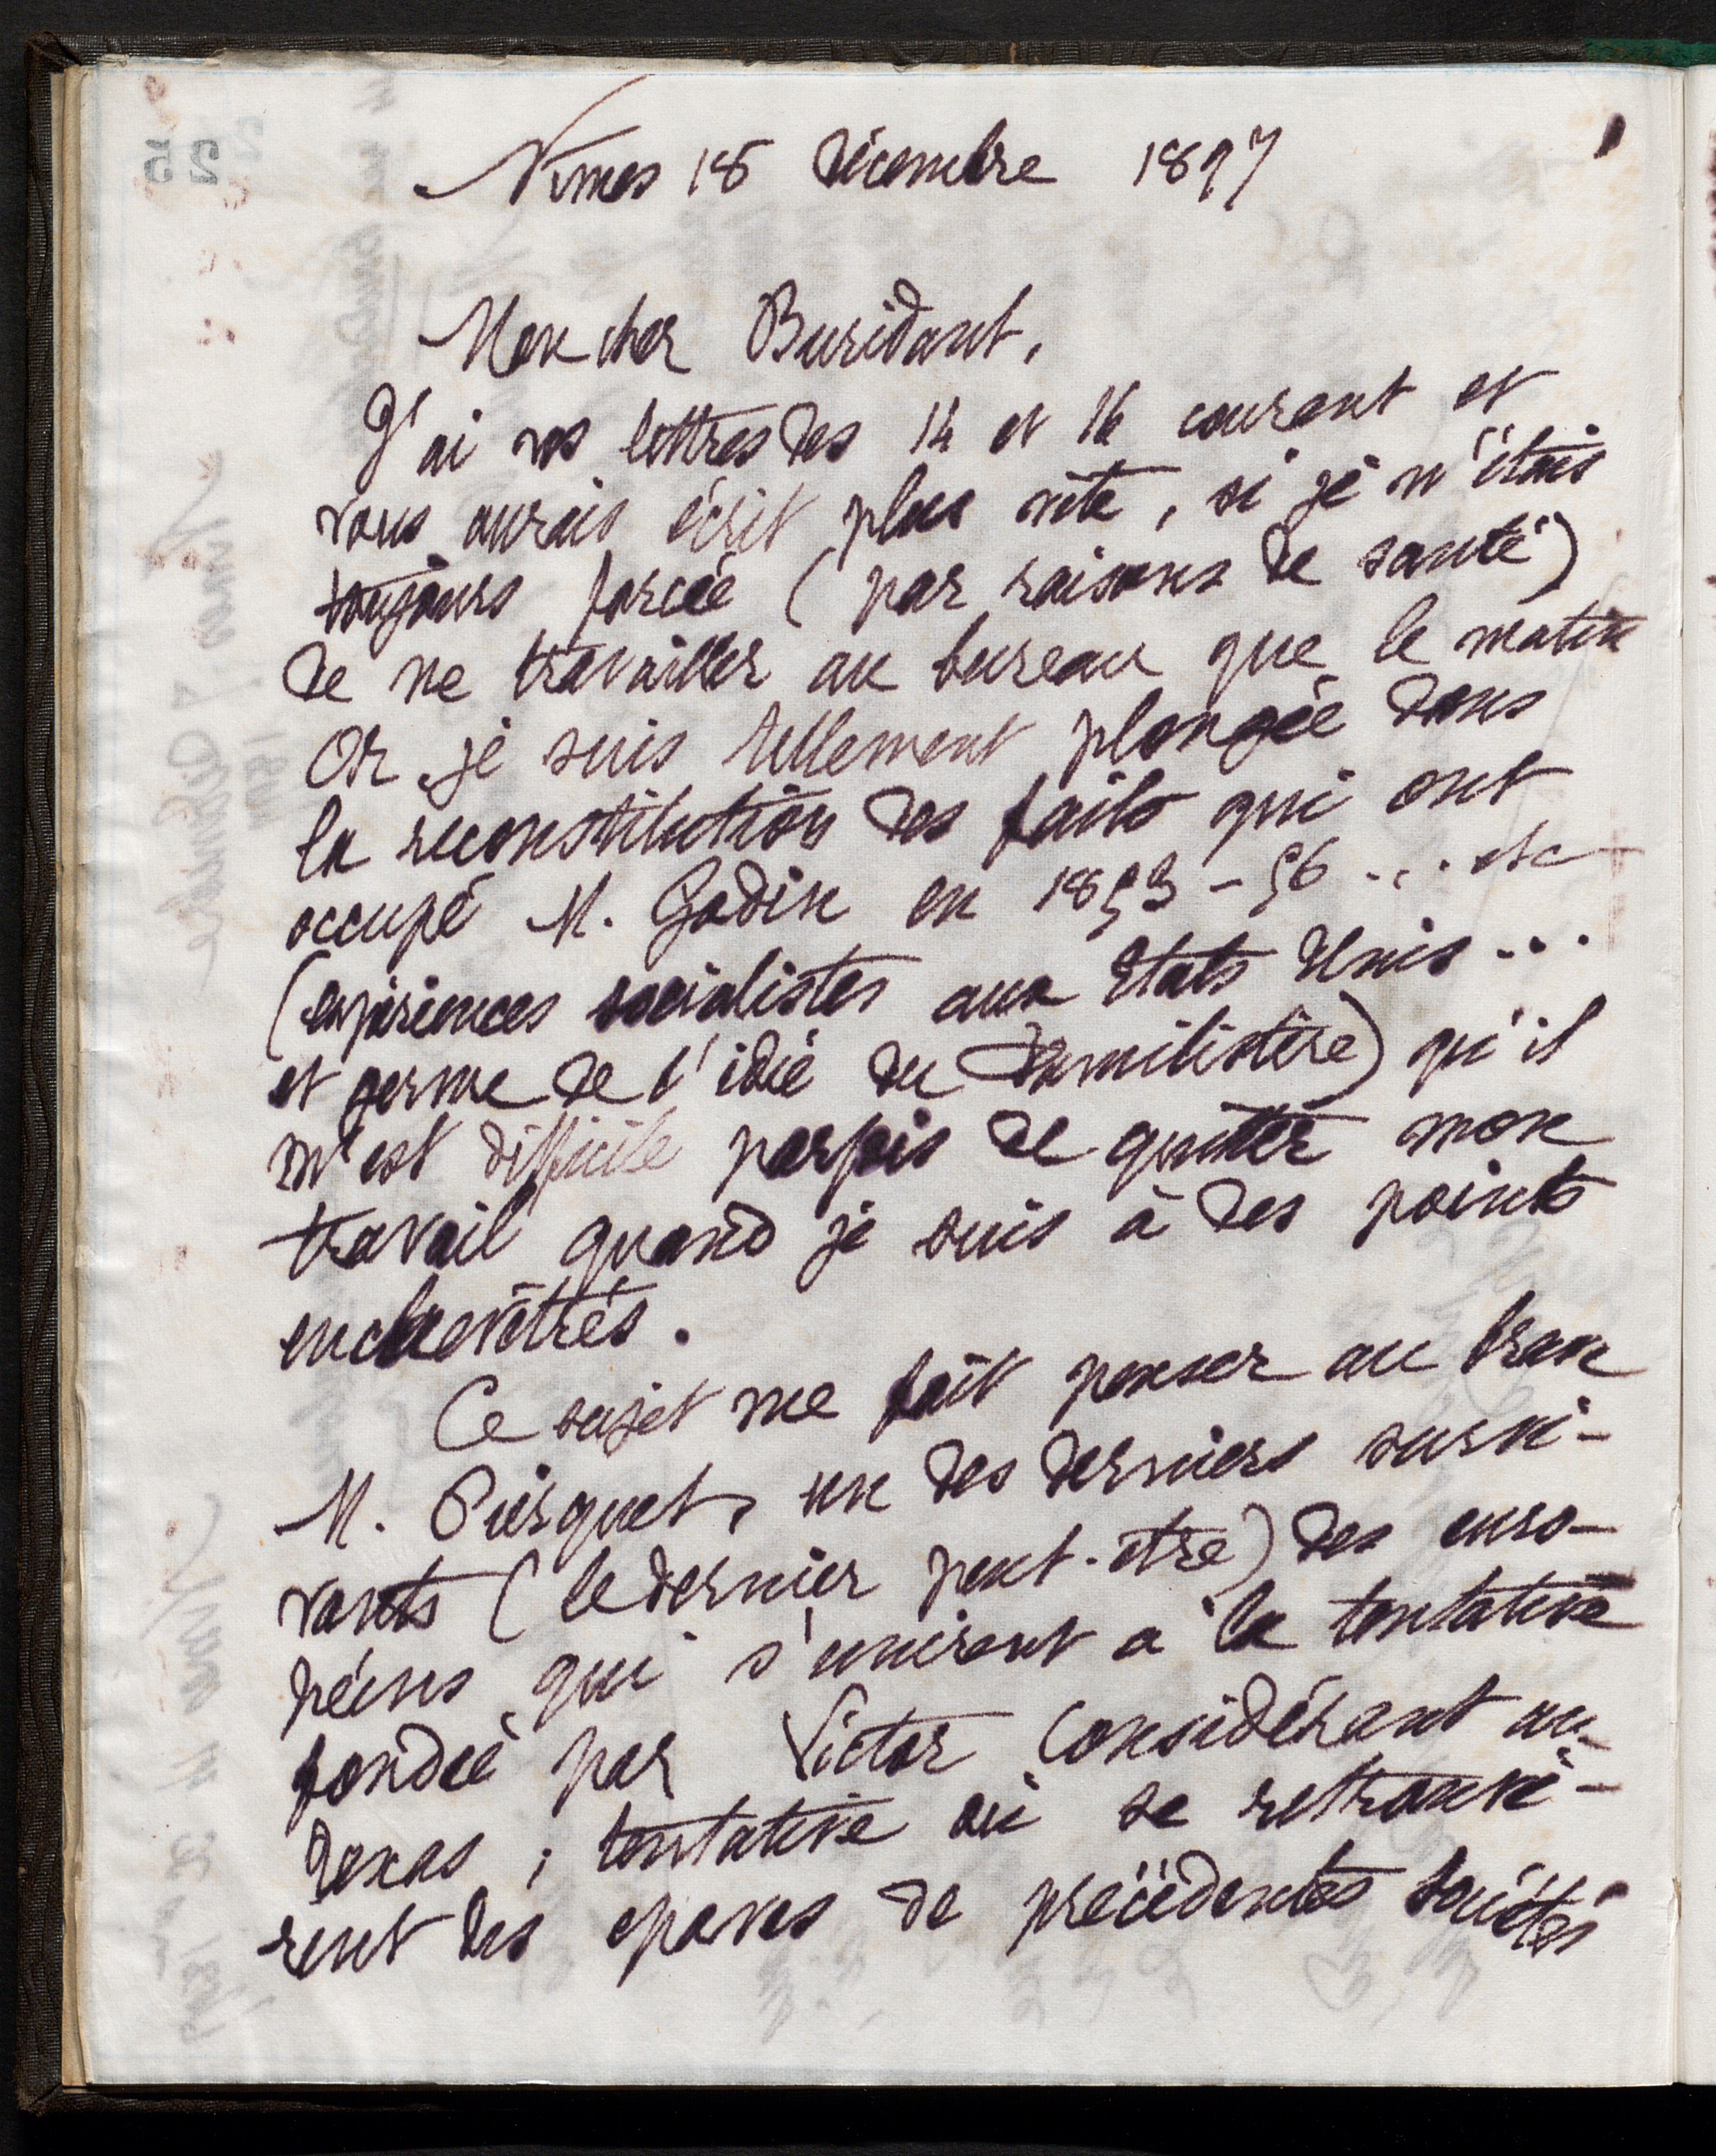 Nîmes 18 décembre 1897
Mon cher Buridant,
J'ai vos lettres des 14 et 16 courant et
vous aurais écrit plus vite, si je n'étais
toujours forcée (par raisons de santé)
de ne travailler au bureau que le matin
Or je suis tellement plongée dans
la reconstitution des faits qui ont
occupé M. Godin en 1853-56 ... etc
(expériences socialistes aux Etats Unis ...
et germe de l'idée du Familistère) qu'il
m'est difficile parfois de quitter mon
travail quand je suis à des points
enchevêtrés.
Ce sujet me fait penser au bon
M. Guisquet, un des derniers survi-
vants (le dernier peut-être) des euro-
péens qui s'unirent à la tentative
fondée par Victor Considérant au
Texas ; tentative où se retrouvè-
rent des epaves de précédentes sociétés